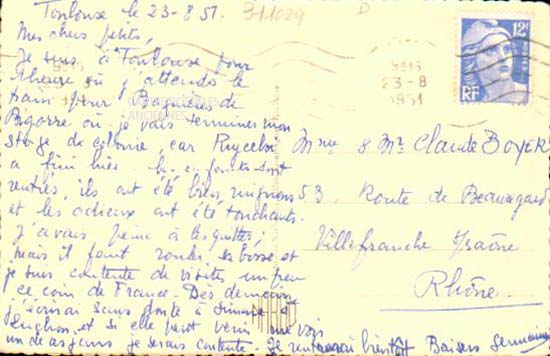 Toulouse le 23-8 51.
Mes chers petits,
Je suis à Toulouse pour
1 heure où j'attends le
train pour Bagnères de
Bigorre où je vais terminer mon
stage de colonie, car Puycelsi
a fini hier. Les enfants sont
rentrés, ils ont été bien mignons
et les adieux ont été touchants.
J'avais peine à les quitter;
mais il faut rouler sa bosse et
je suis contente de visiter un peu
ce coin de France. Dès demain
j'écrirai sans doute à
et si elle peut venir me voir
un de ces jours je serais contente. Je rentrerai bientôt Baisers Germaine
311029
12F
RF
23-8
1951
Mme & Mr Claude Boyer
53 Route de Beauregard
Villefranche s/Saône
Rhône